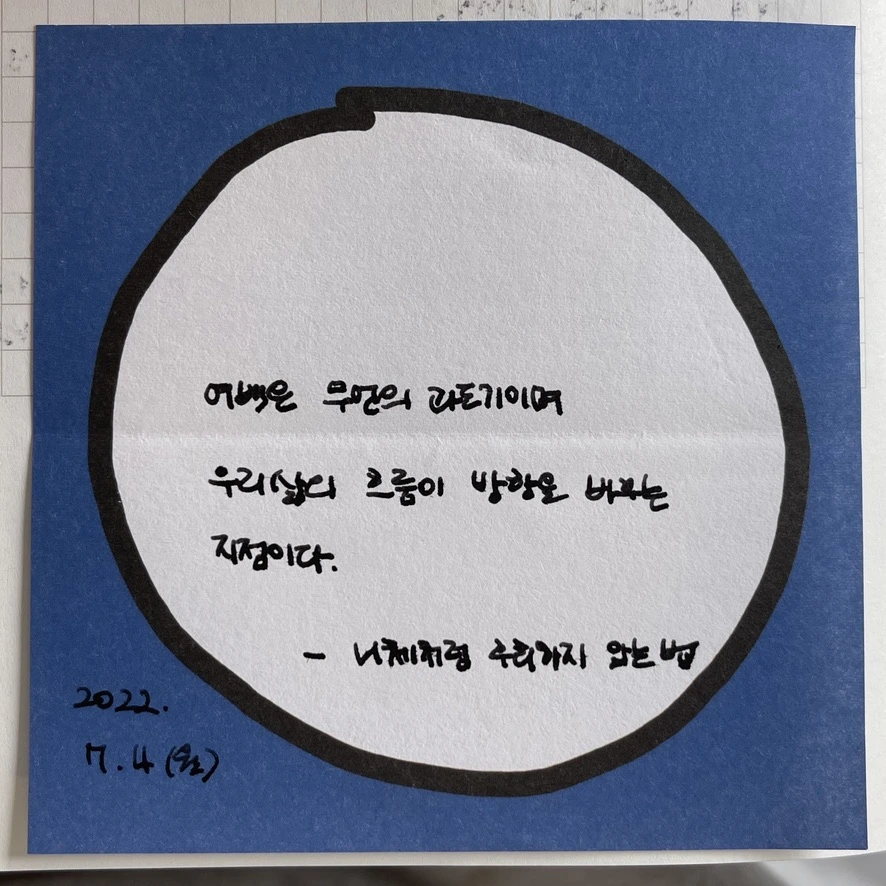 여백은 무언의 과도기이며
우리 삶의 흐름이 방향을 바꾸는
지점이다.
- 니체처럼 후회하지 않는 법
2022.
7.4(월)